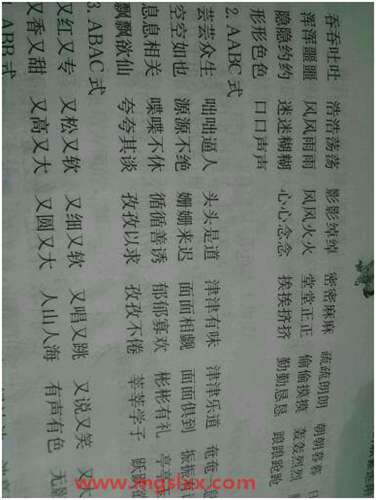 吞吞吐吐 浩浩荡荡 影影绰绰 密密麻麻 疏疏朗朗 朝朝暮暮
浑浑噩噩 风风雨雨 风风火火 堂堂正正 偷偷摸摸 轰轰烈烈
隐隐约约 迷迷糊糊 心心念念 挨挨挤挤 勤勤恳恳
形形色色 口口声声
2. AABC 式
芸芸众生 咄咄逼人 头头是道 津津有味 津津乐道 奄奄
空空如也 源源不绝 姗姗来迟 面面相觑 面面俱到 振振
息息相关 喋喋不休 循循善诱 郁郁寡欢 彬彬有礼 亭亭
飘飘欲仙 夸夸其谈 孜孜以求 孜孜不倦 莘莘学子 跃跃
3. ABAC 式
又红又专 又松又软 又细又软 又唱又跳 又说又笑 又大
又香又甜 又高又大 又圆又大 人山人海 有声有色 无影
ABB 式
www.mgslxx.com